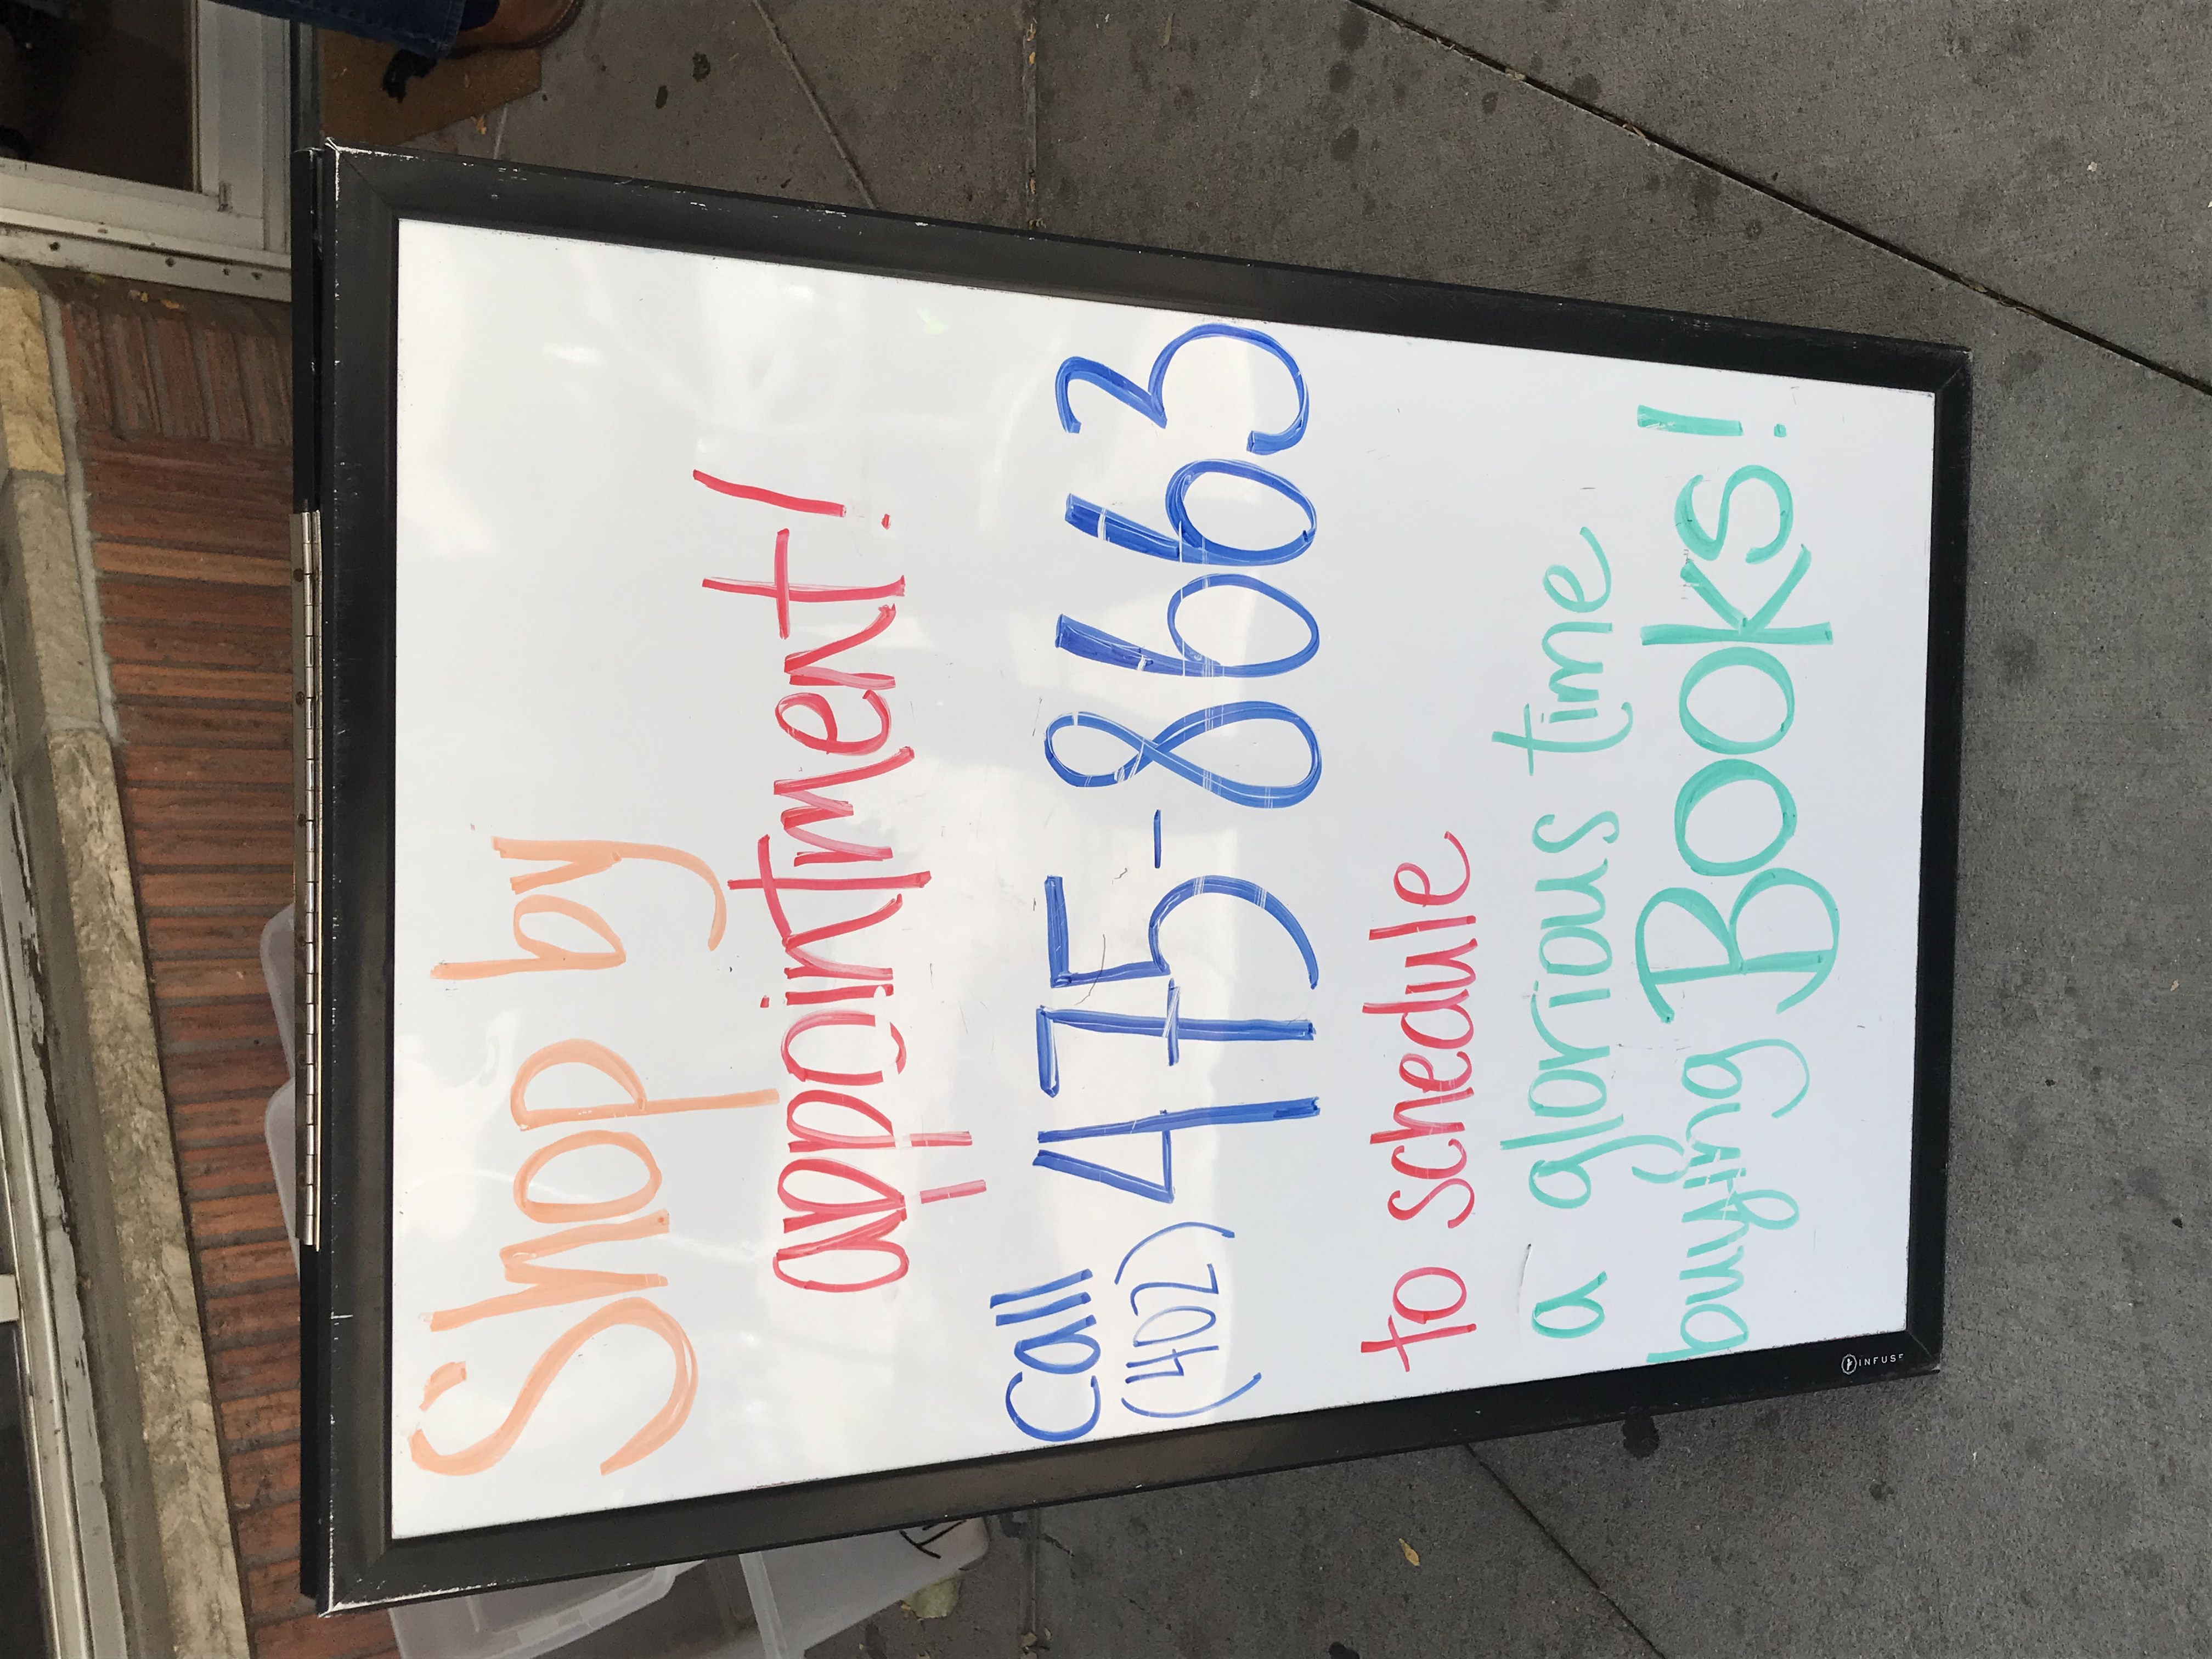 Shop by
appointment!
Call
(402) 475-8663
to schedule
a glorious time
buying Books!
INFUSE